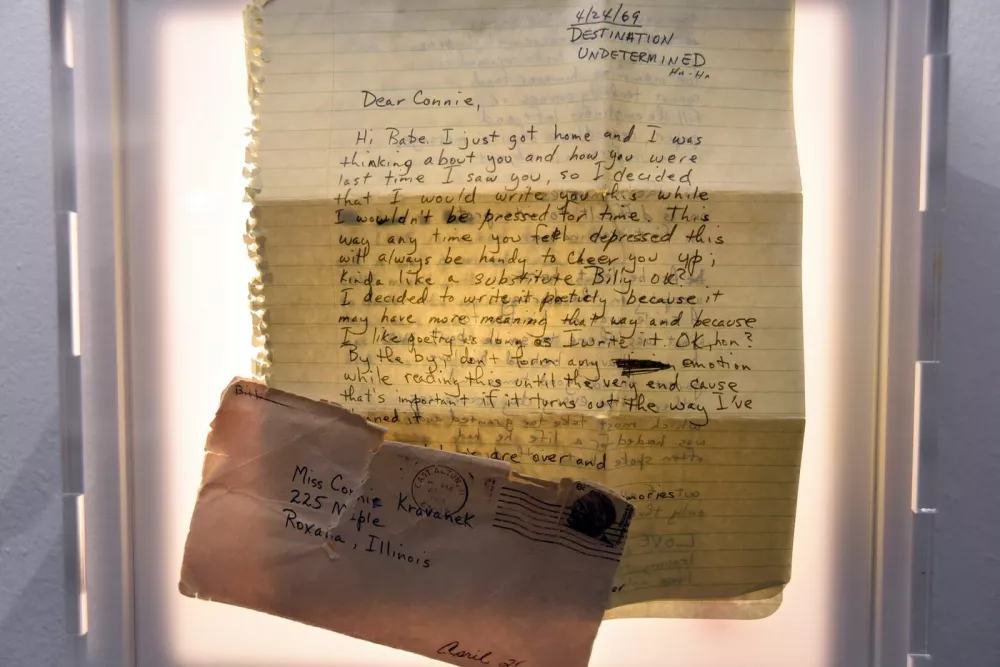 4/24/69
DESTINATION
UNDETERMINED
Ha-Ha
Dear Connie,
Hi Babe. I just got home and I was
thinking about you and how you were
last time I saw you, so I decided
that I would write you this while
I wouldn't be pressed for time. This
way any time you feel depressed this
will always be handy to cheer you up;
Kinda like a substitute Billy OK?
I decided to write it poeticly because it
may have more meaning that way and because
I like poetry as long as I write it. OK, hon?
By the by, don't form any emotion
while reading this until the very end cause
that's important if it turns out the way I've
it
are over and
Miss Connie Kravanek
225 Maple
Roxana, Illinois
EAST ALTON
April